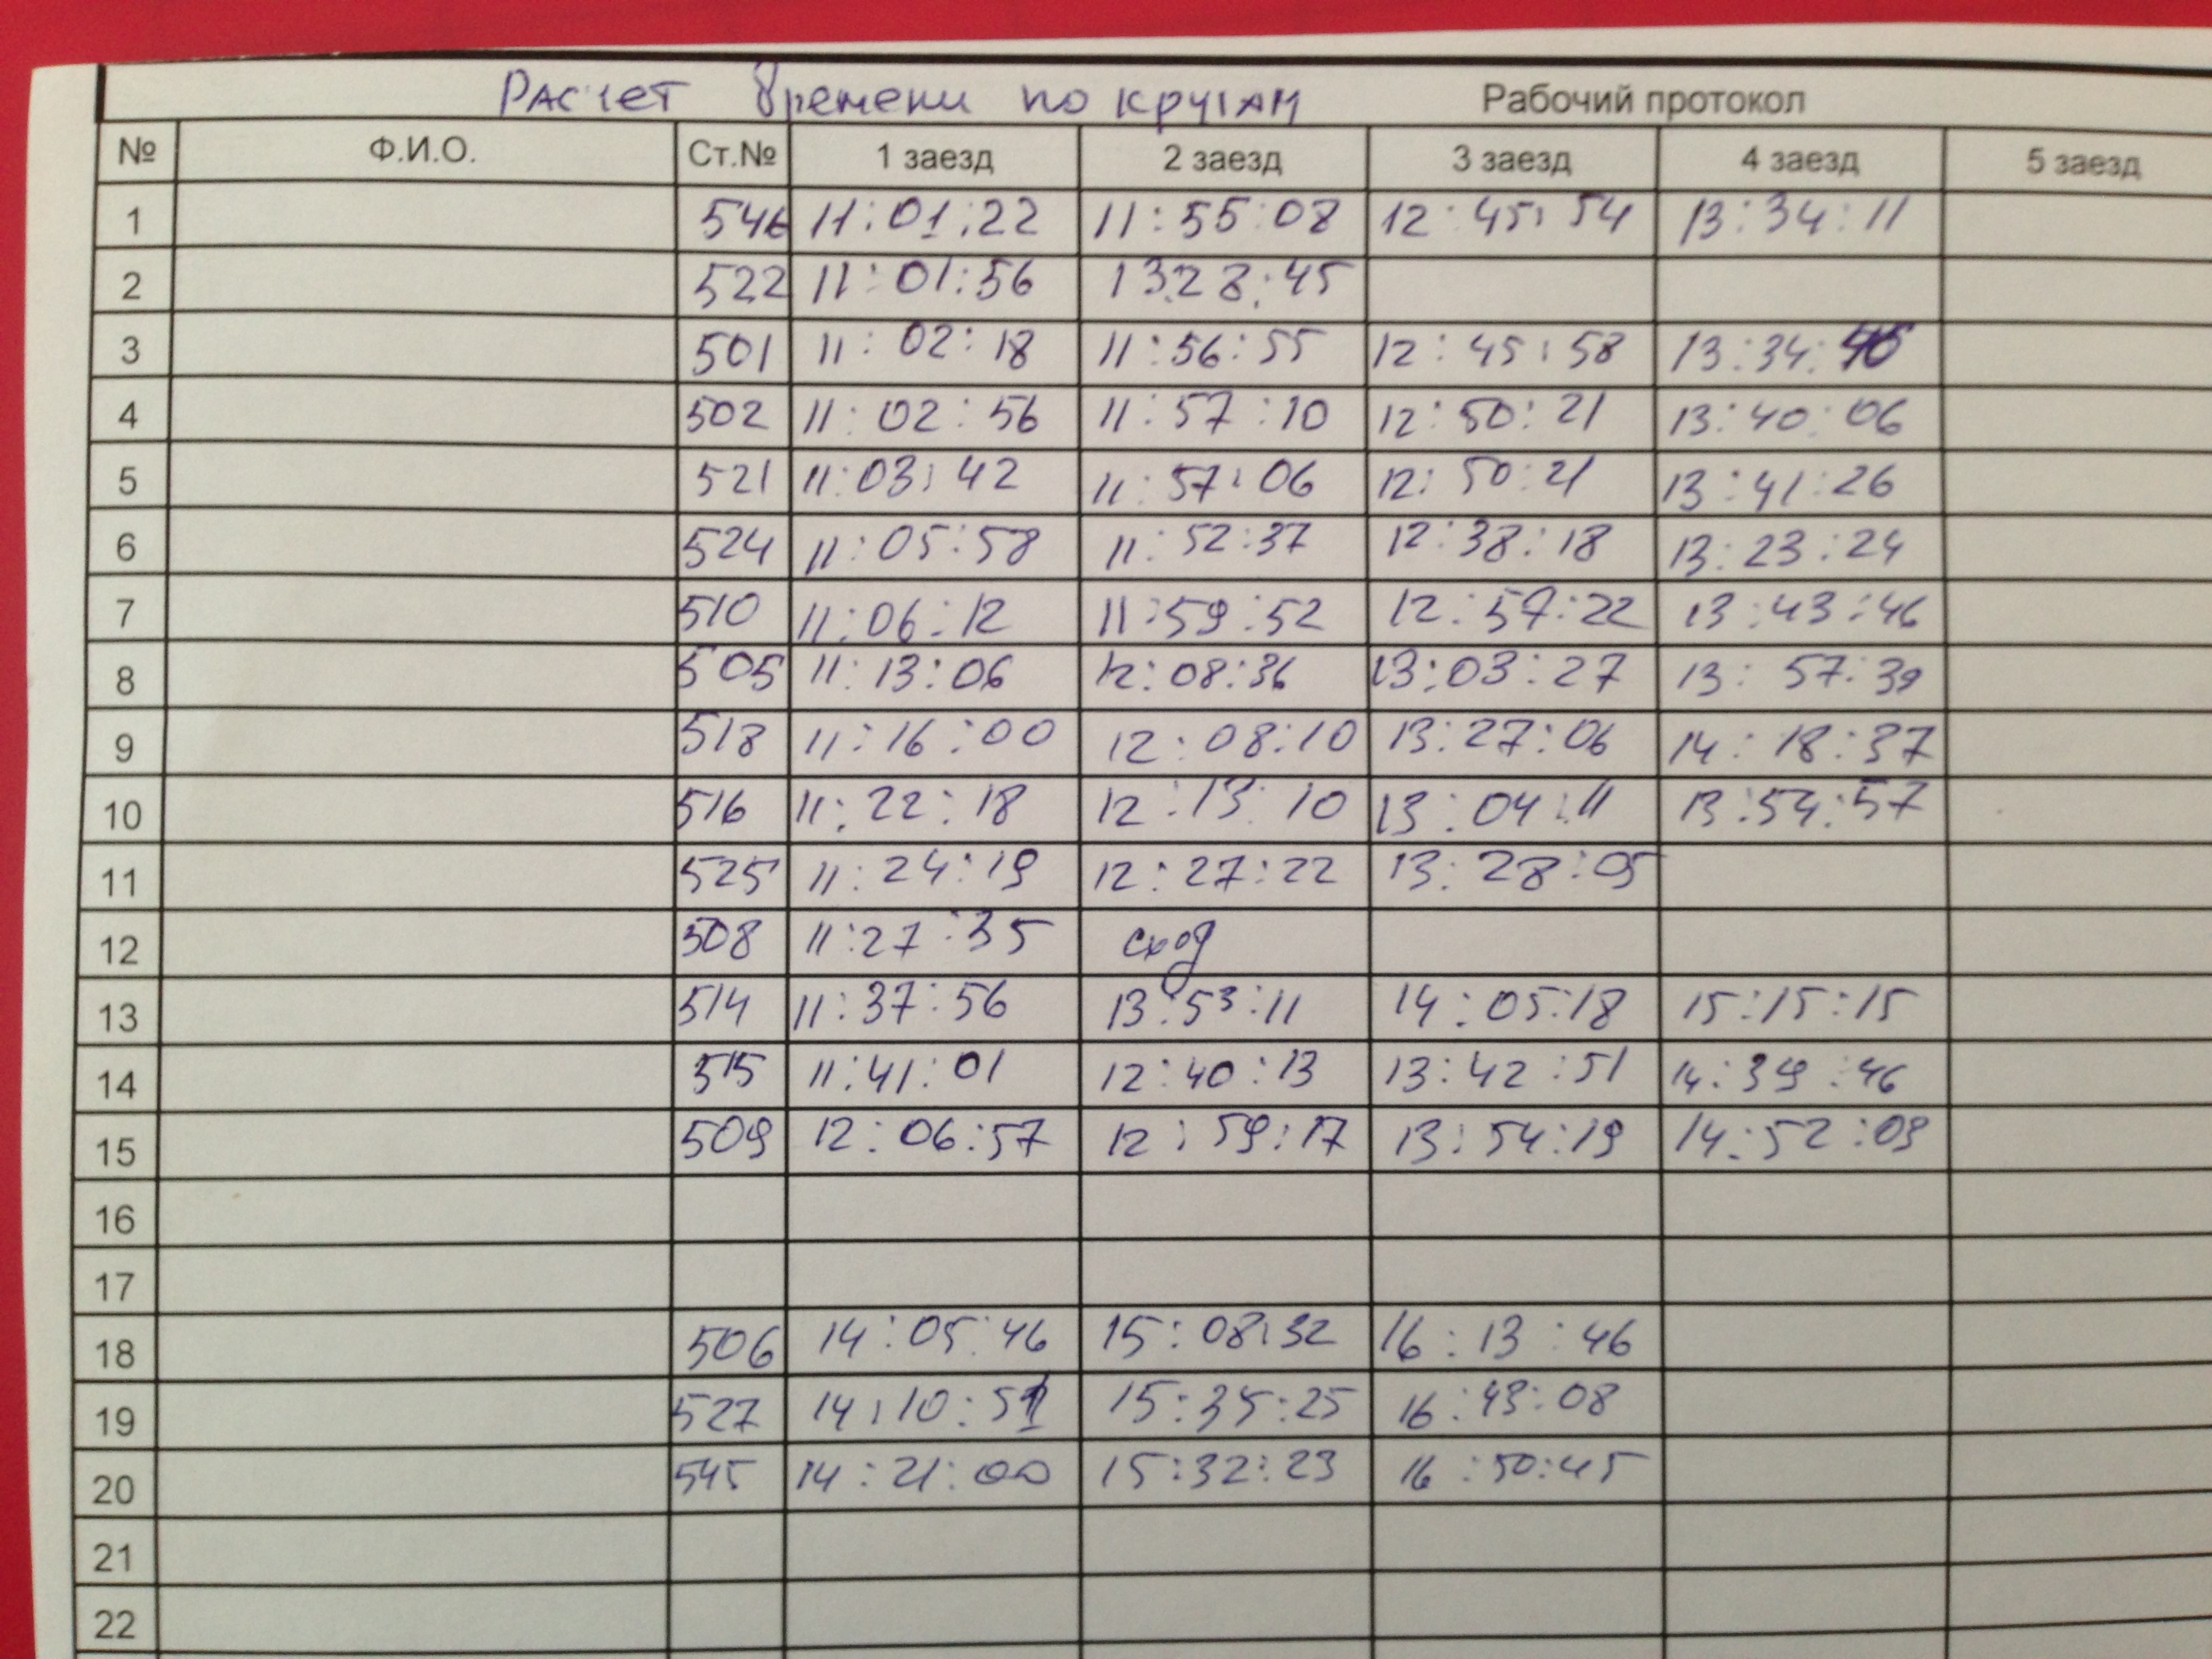 Расчет времени по кругам Рабочий протокол
№ Ф.И.О. Ст.№ 1 заезд 2 заезд 3 заезд 4 заезд 5 заезд
1 546 11:01:22 11:55:08 12:45:54 13:34:11
2 522 11:01:56 13:28:45
3 501 11:02:18 11:56:55 12:45:58 13:34:
4 502 11:02:56 11:57:10 12:50:21 13:40:06
5 521 11:03:42 11:57:06 12:50:21 13:41:26
6 524 11:05:58 11:52:37 12:38:18 13:23:24
7 510 11:06:12 11:59:52 12:57:22 13:43:46
8 505 11:13:06 12:08:36 13:03:27 13:57:39
9 518 11:16:00 12:08:10 13:27:06 14:18:37
10 516 11:22:18 12:13:10 13:04:11 13:54:57
11 525 11:24:19 12:27:22 13:28:05
12 508 11:27:35 сход
13 514 11:37:56 13:53:11 14:05:18 15:15:15
14 515 11:41:01 12:40:13 13:42:51 14:39:46
15 509 12:06:57 12:59:17 13:54:19 14:52:09
16
17
18 506 14:05:46 15:08:32 16:13:46
19 527 14:10:51 15:35:25 16:43:08
20 545 14:21:00 15:32:23 16:50:45
21
22